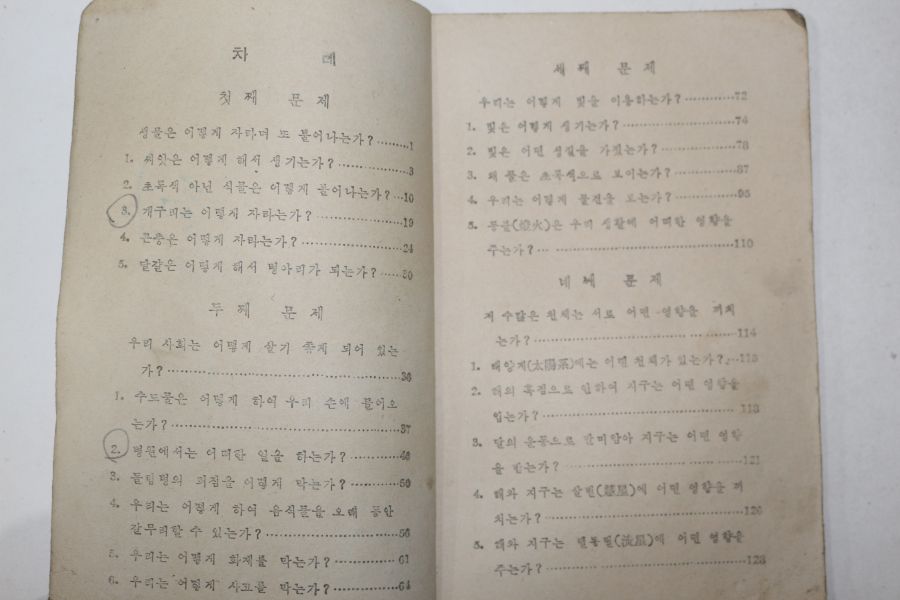 차 례
첫 째 문 제
생물은 어떻게 자라며 또 불어나는가? ········1
1. 씨앗은 어떻게 해서 생기는가? ············3
2. 초록색 아닌 식물은 어떻게 불어나는가? ··10
3. 개구리는 어떻게 자라는가? ··············19
4. 곤충은 어떻게 자라는가? ················24
5. 달걀은 어떻게 해서 병아리가 되는가? ·····30
두 째 문 제
우리 사회는 어떻게 살기 좋게 되어 있는
가? ······························36
1. 수도물은 어떻게 하여 우리 손에 들어오
는가? ····························37
2. 병원에서는 어떠한 일을 하는가? ·········46
3. 돌림병의 퍼짐을 어떻게 막는가? ·········50
4. 우리는 어떻게 하여 음식물을 오래 동안
갈무리할 수 있는가? ···················56
5. 우리는 어떻게 화재를 막는가? ···········61
6. 우리는 어떻게 사고를 막는가? ···········64
세 째 문 제
우리는 어떻게 빛을 이용하는가? ···········72
1. 빛은 어떻게 생기는가? ··················74
2. 빛은 어떤 성질을 가졌는가? ·············78
3. 왜 풀은 초록색으로 보이는가? ···········87
4. 우리는 어떻게 물건을 보는가? ···········95
5. 등불(燈火)은 우리 생활에 어떠한 영향을
주는가? ····························110
네 째 문 제
저 수많은 천체는 서로 어떤 영향을 끼치
는가? ······························114
1. 태양계(太陽系)에는 어떤 천체가 있는가? ··115
2. 해의 흑점으로 인하여 지구는 어떤 영향을
입는가? ····························118
3. 달의 운동으로 말미암아 지구는 어떤 영향
을 받는가? ·························121
4. 해와 지구는 살별(彗星)에 어떤 영향을 끼
치는가? ····························126
5. 해와 지구는 별똥별(流星)에 어떤 영향을
주는가? ····························128